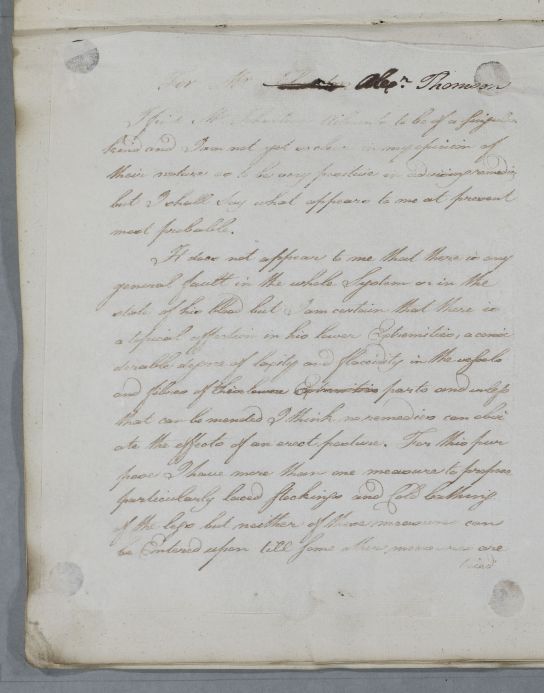 For Mr Alexr. Thomson
I find Mr ailments to be of a singular
kind and I am not yet so clear in my opinion of
their nature as to be very positive in advising remedies
but I shall say what appears to me at present
most probable.
It does not appear to me that there is any
general fault in the whole System or in the
state of his blood but I am certain that there is
a topical affection in his lower Extremities, a consi
derable degree of laxity and flaccidity in the vessels
and fibres of these lower Extremities parts and unless
that can be mended I think no remedies can obvi
ate the effects of an erect posture. For this pur
pose I have more than one measure to propose
particularly laced stockings and Cold bathing
of the legs but neither of these measures can
be Entered upon till some other measures are
tried